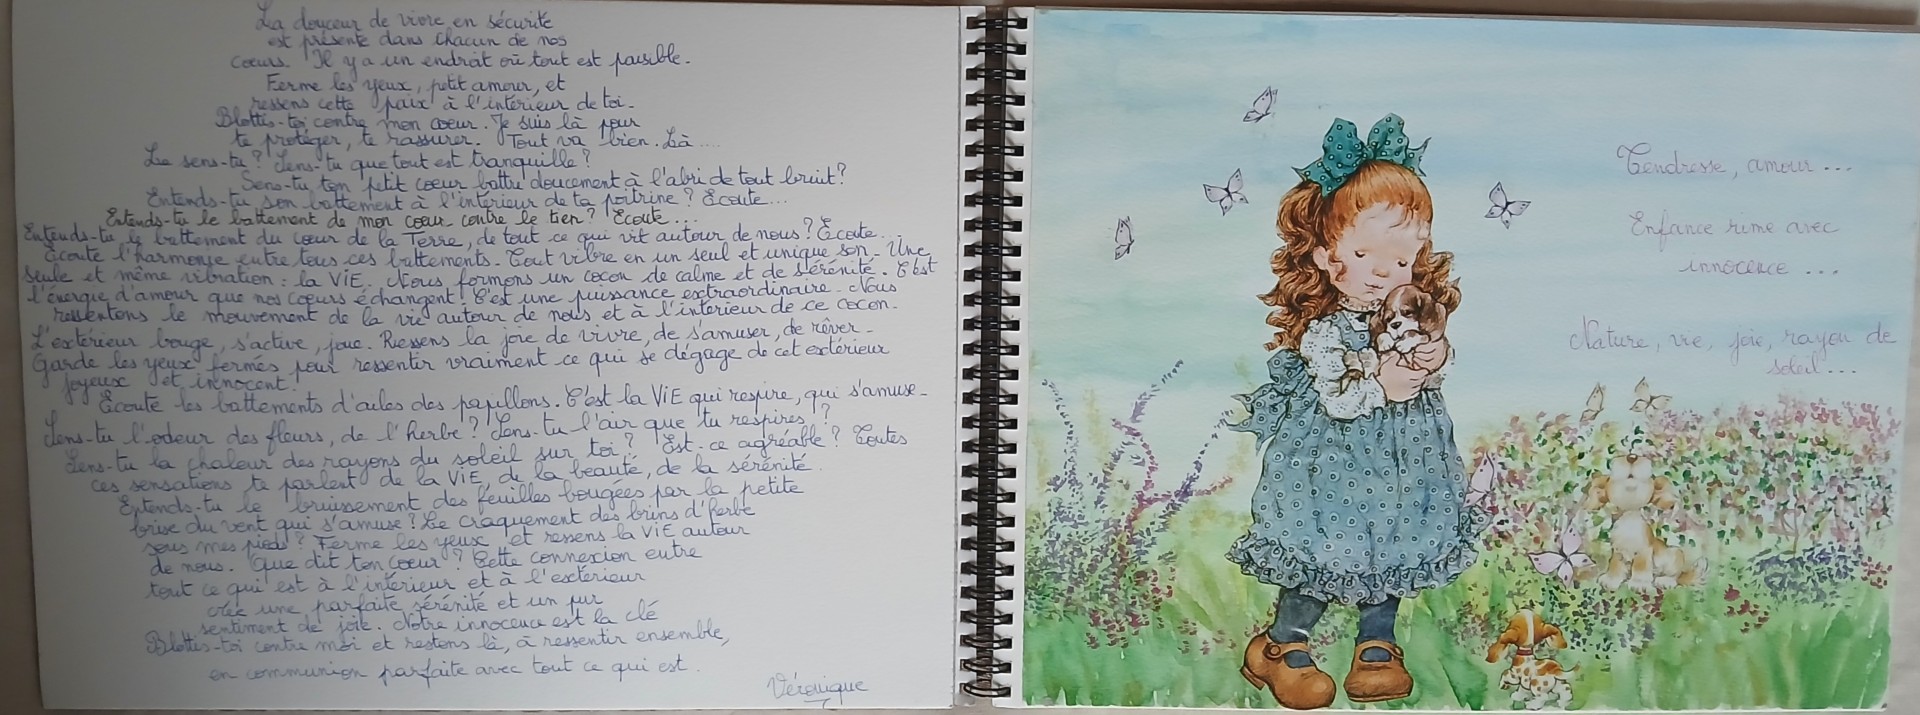 La douceur de vivre en sécurité
est présente dans chacun de nos
coeurs. Il y a un endroit où tout est paisible.
Ferme les yeux, petit amour, et
ressens cette paix à l'intérieur de toi.
Blottis-toi contre mon coeur. Je suis là pour
te protéger, te rassurer. Tout va bien. Là....
Le sens-tu? Sens-tu que tout est tranquille?
Sens-tu ton petit coeur battre doucement à l'abri de tout bruit?
Entends-tu son battement à l'intérieur de ta poitrine? Écoute...
Entends-tu le battement de mon coeur contre le tien? Écoute...
Entends-tu le battement du coeur de la Terre, de tout ce qui vit autour de nous? Écoute...
Écoute l'harmonie entre tous ces battements. Tout vibre en un seul et unique son. Une
seule et même vibration: la ViE. Nous formons un cocon de calme et de sérénité. C'est
l'énergie d'amour que nos coeurs échangent! C'est une puissance extraordinaire. Nous
ressentons le mouvement de la vie autour de nous et à l'intérieur de ce cocon.
L'extérieur bouge, s'active, joue. Ressens la joie de vivre, de s'amuser, de rêver.
Garde les yeux fermés pour ressentir vraiment ce qui se dégage de cet extérieur
joyeux et innocent!
Écoute les battements d'ailes des papillons. C'est la ViE qui respire, qui s'amuse.
Sens-tu l'odeur des fleurs, de l'herbe? Sens-tu l'air que tu respires?
Sens-tu la chaleur des rayons du soleil sur toi? Est-ce agréable? Toutes
ces sensations te parlent de la ViE, de la beauté, de la sérénité.
Entends-tu le bruissement des feuilles bougées par la petite
brise du vent qui s'amuse? Le craquement des brins d'herbe
sous mes pieds? Ferme les yeux et ressens la ViE autour
de nous. Que dit ton coeur? Cette connexion entre
tout ce qui est à l'intérieur et à l'extérieur
crée une parfaite sérénité et un pur
sentiment de joie. Notre innocence est la clé
Blottis-toi contre moi et restons là, à ressentir ensemble,
en communion parfaite avec tout ce qui est.
Véronique
Tendresse, amour...
Enfance rime avec
innocence...
Nature, vie, joie, rayon de
soleil...